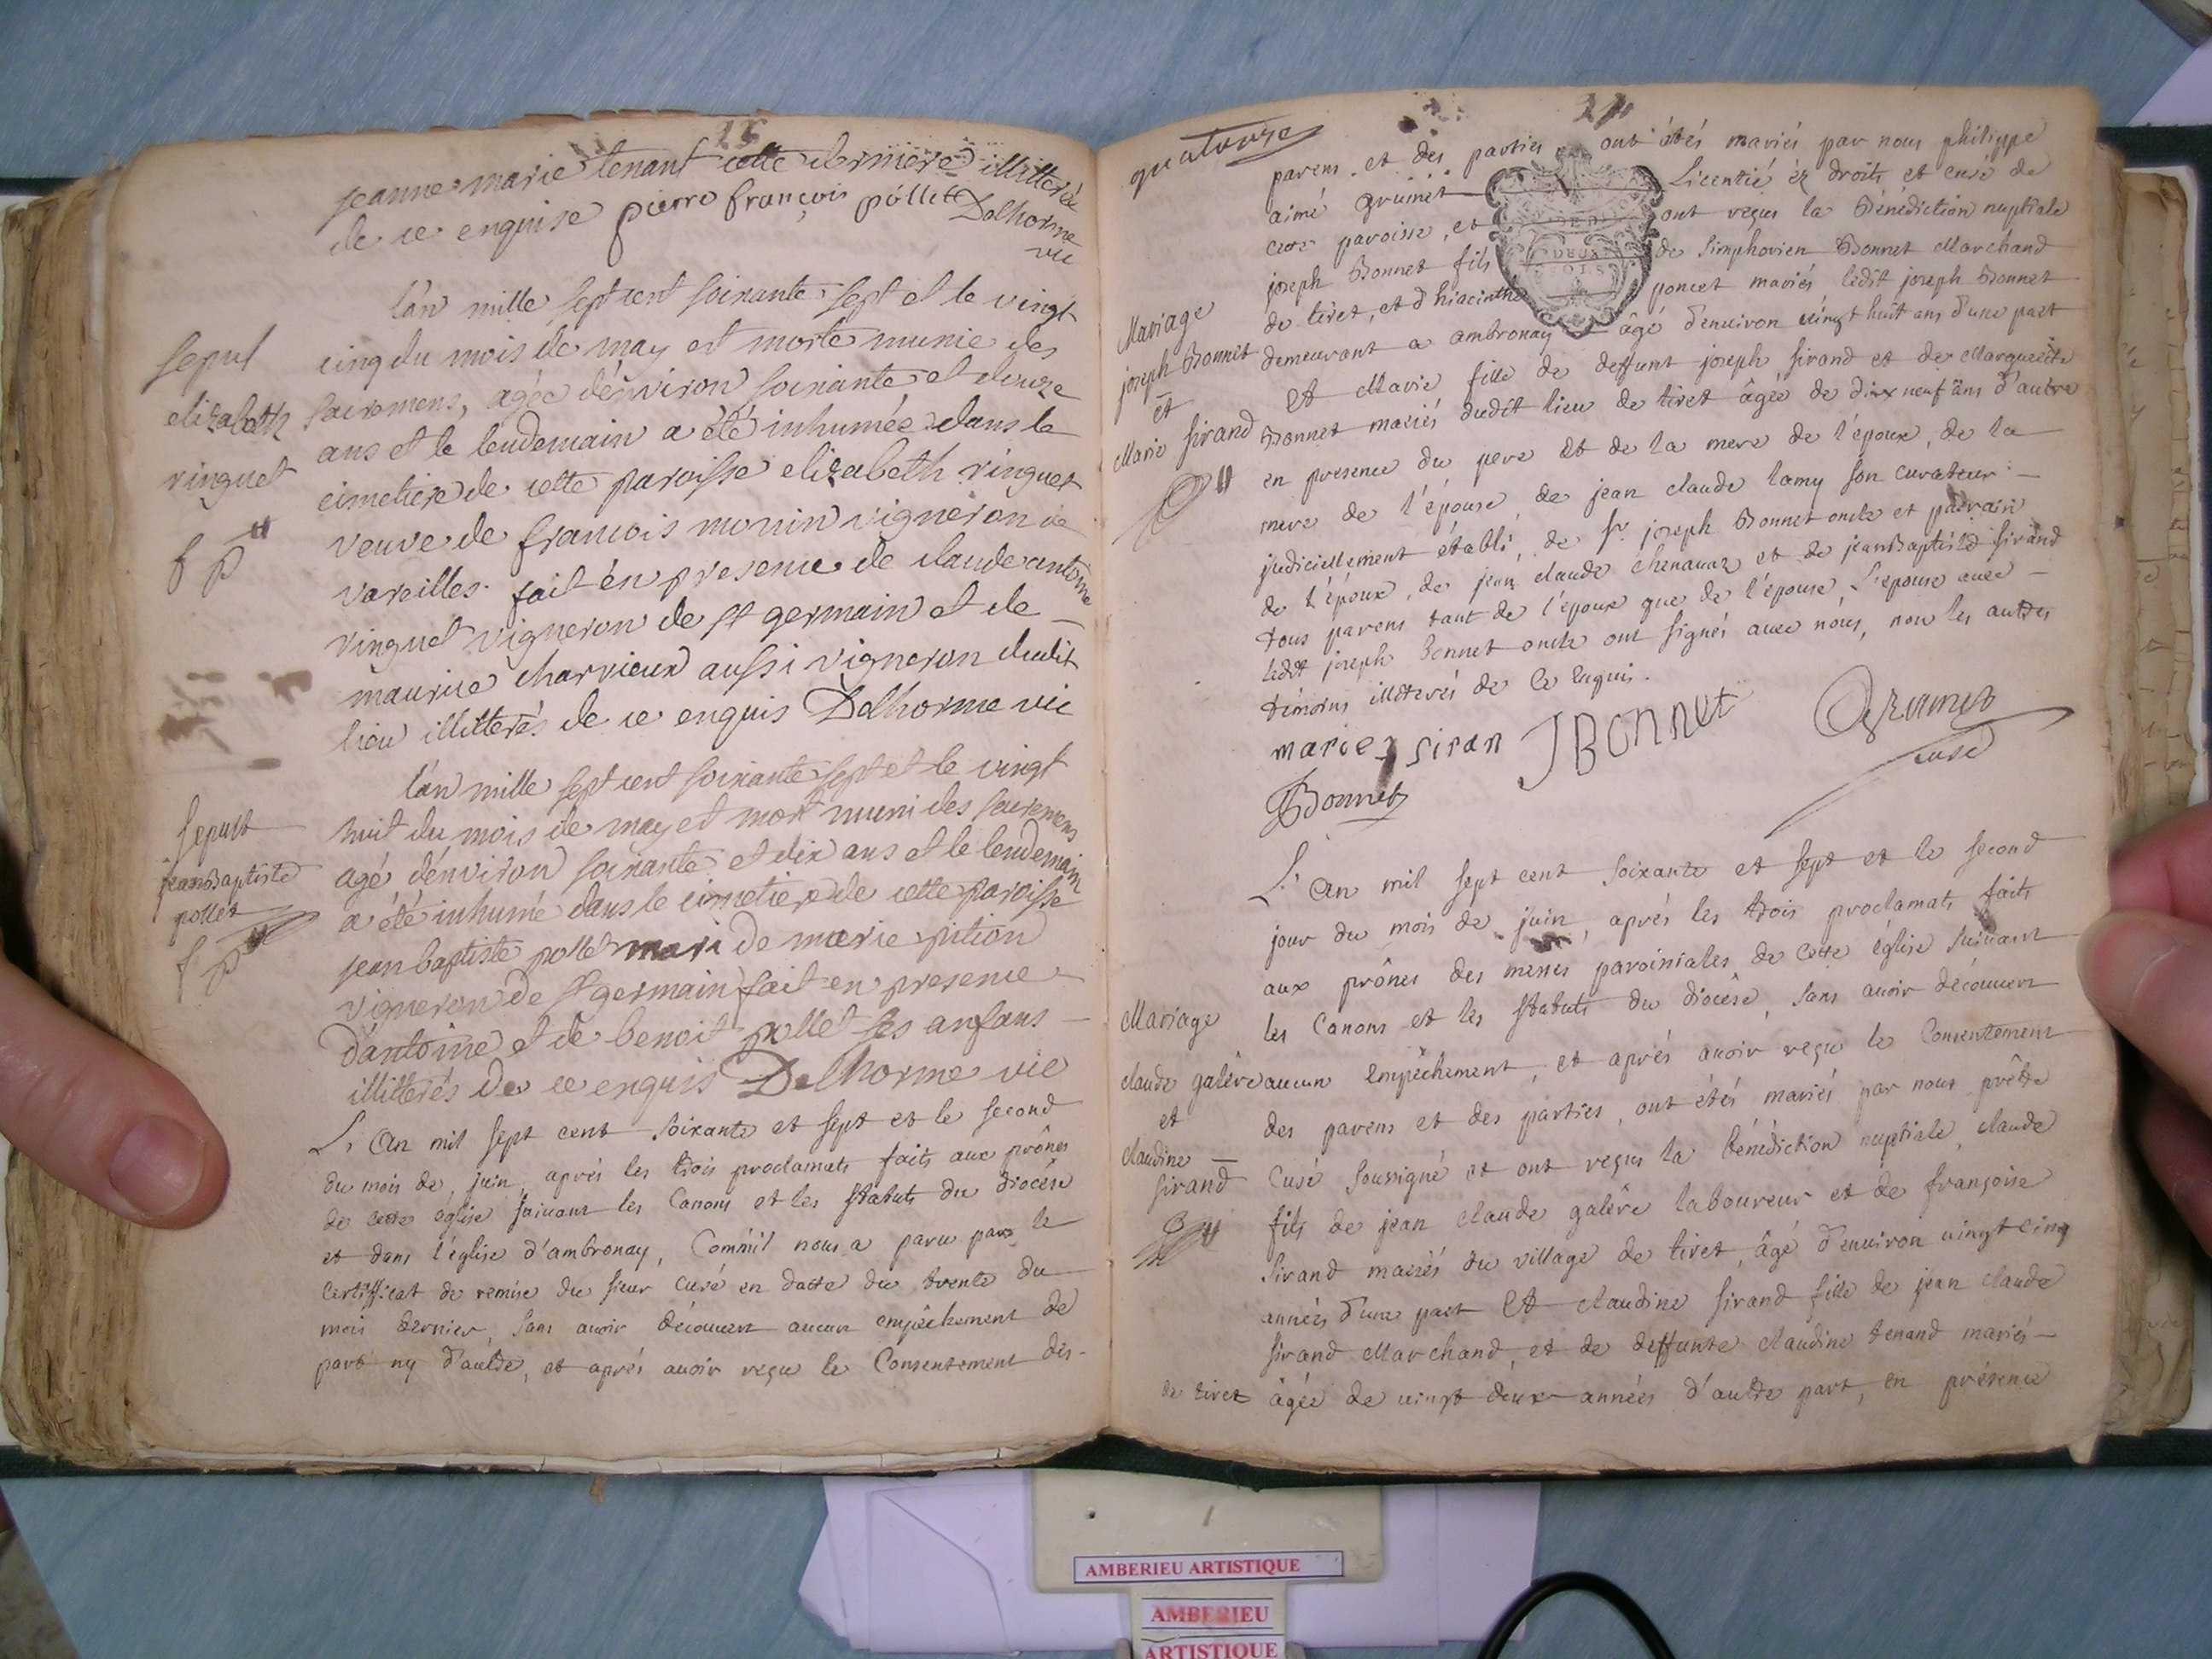 jeanne marie tenant cette derniere illitteré
de ce enquise pierre françois póllet Delhorme
vic
l'an mille sept cent soixante sept et le vingt
Sepul
elizabeth
vinguet
cinq du mois de may est morte munie des
sacremens, agée d'environ soixante et douze
ans et le lendemain a été inhumée dans le
cimetiere de cette paroisse elizabeth vinguet
veuve de francois monin vigneron de
vareilles. fait en presence de claude antoine
vinguet vigneron de st germain et de
maurice charvieux aussi vigneron dudit
lieu illitterés de ce enquis Delhorme vic
l'an mille sept cent soixante sept et le vingt
Sepult
jean Baptiste
pollet
huit du mois de may est mort muni des sacremens
agé d'environ soixante et dix ans et le lendemain
a été inhumé dans le cimetiere de cette paroisse
jean baptiste pollet mari de marie pition
vigneron de st germain fait en presence
d'antoine et de benoit pollet ses anfans
illitterés de ce enquis Delhorme vic
L'An mil sept cent soixante et sept et le second
du mois de juin, aprés les trois proclamats faits aux prônes
de cette eglise suivant les Canons et les statuts du diocése
et dans l'église d'ambronay, Comm'il nous a paru par le
certifficat de remise du sieur curé en datte du trente du
mois dernier, sans avoir découvert aucun empêchement de
part ny d'autre, et aprés avoir reçu le Consentement des
quatorze
14
parens et des parties ont étés mariés par nous philippe
aimé grumet Licentié éz droits et curé de
cette paroisse, et ont reçus la Bénédiction nuptiale
joseph Bonnet fils de Simphorien Bonnet Marchand
de tiret, et d'hiacinthe poncet mariés ledit joseph Bonnet
Mariage
joseph Bonnet
et
Marie Sirand
demeurant a ambronay âgé d'environ vingt huit ans d'une part
Et Marie fille de deffunt joseph Sirand et de Marguerite
Bonnet mariés dudit lieu de tiret âgée de dix neuf ans d'autre
en presence du pere et de la mere de l'époux, de la
mere de l'épouse, de jean claude lamy son curateur
judiciellement établi, de Sr joseph Bonnet oncle et parrain
de l'époux, de jean claude chenavaz et de jean Baptiste Sirand
tous parens tant de l'époux que de l'épouse, L'epouse avec
ledit joseph Bonnet oncle ont signés avec nous, non les autres
témoins illiterés de ce enquis.
marie siran JBONNet Grumet
curé
Bonnet
L'An mil sept cent soixante et sept et le second
jour du mois de juin, aprés les trois proclamats faits
aux prônes des messes paroissiales de cette église suivant
les Canons et les statuts du diocêse, sans avoir découvert
Mariage
claude galére
et
claudine
Sirand
aucun empêchement, et aprés avoir reçu le Consentement
des parens et des parties, ont étés mariés par nous prêtre
Curé soussigné et ont reçus la bénédiction nuptiale, claude
fils de jean claude galére laboureur et de françoise
Sirand mariés du village de tiret, âgé d'environ vingt cinq
années d'une part Et claudine Sirand fille de jean claude
Sirand Marchand, et de deffunte claudine tenand mariés
de tiret âgée de vingt deux années d'autre part, en présence
AMBERIEU ARTISTIQUE
AMBERIEU
ARTISTIQUE